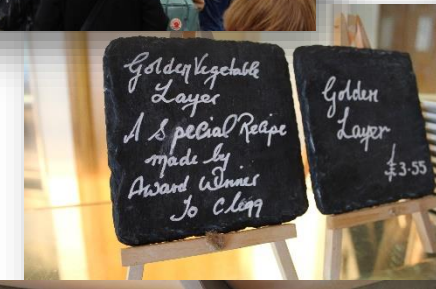 Golden Vegetable
Layer
A Special Recipe
made by
Award Winner
Jo Clegg
Golden
Layer
£3.55